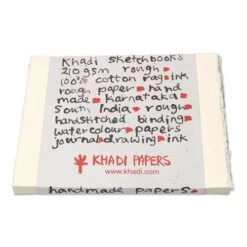 Khadi Sketchbooks
210 gsm rough
100% cotton rag ink
rough paper hand
made Karnataka
South India rough
handstitched binding
watercolour papers
journal drawing ink
KHADI PAPERS
www.khadi.com
handmade papers